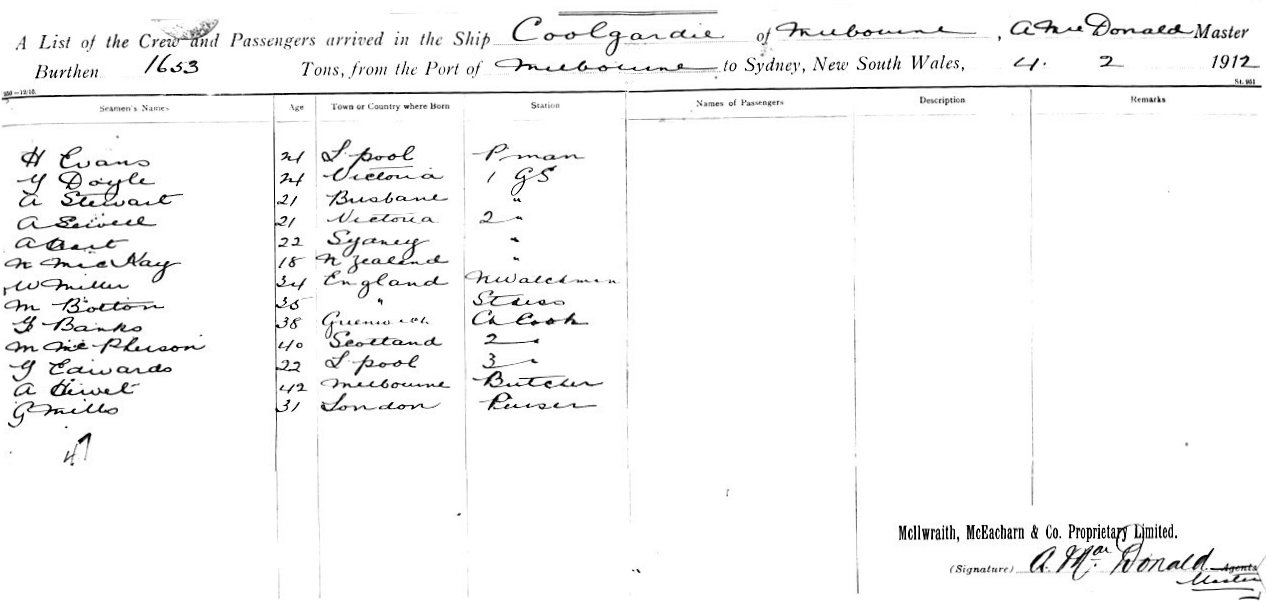 A List of the Crew and Passengers arrived in the Ship Coolgardie of Melbourne, A McDonald Master
Burthen 1653 Tons, from the Port of Melbourne to Sydney, New South Wales, 4. 2 1912
950—12/10. St. 951
Seamen's Names Age Town or Country where Born Station Names of Passengers Description Remarks
H Evans 21 L pool P man
Y Doyle 21 Victoria 1 GS
A Stewart 21 Busbane "
A Sewell 21 Victoria 2 "
A 22 Sydney "
N McKay 18 N Zealand "
W Miller 34 England N Watchman
M Bolton 35 " Stwess
Banks 38 Greenwich Ch Cook
M McPherson 40 Scotland 2 "
G Edwards 22 L pool 3 "
A Hewet 42 Melbourne Butcher
G Mills 31 London Purser
47
McIlwraith, McEacharn & Co. Proprietary Limited.
(Signature) A. Mac Donald Agents
Master